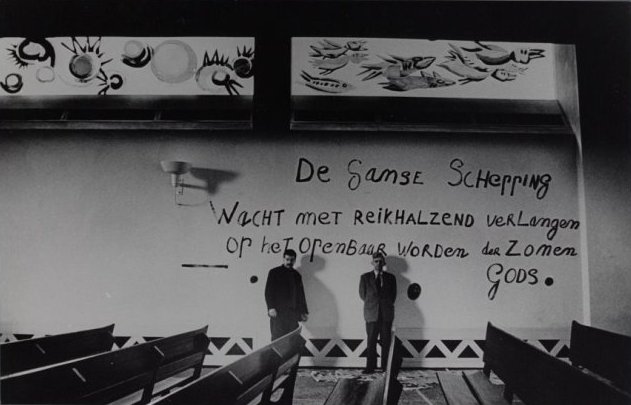 De Ganse Schepping
Wacht met Reikhalzend verlangen
op het openbaar worden der Zonen
Gods.